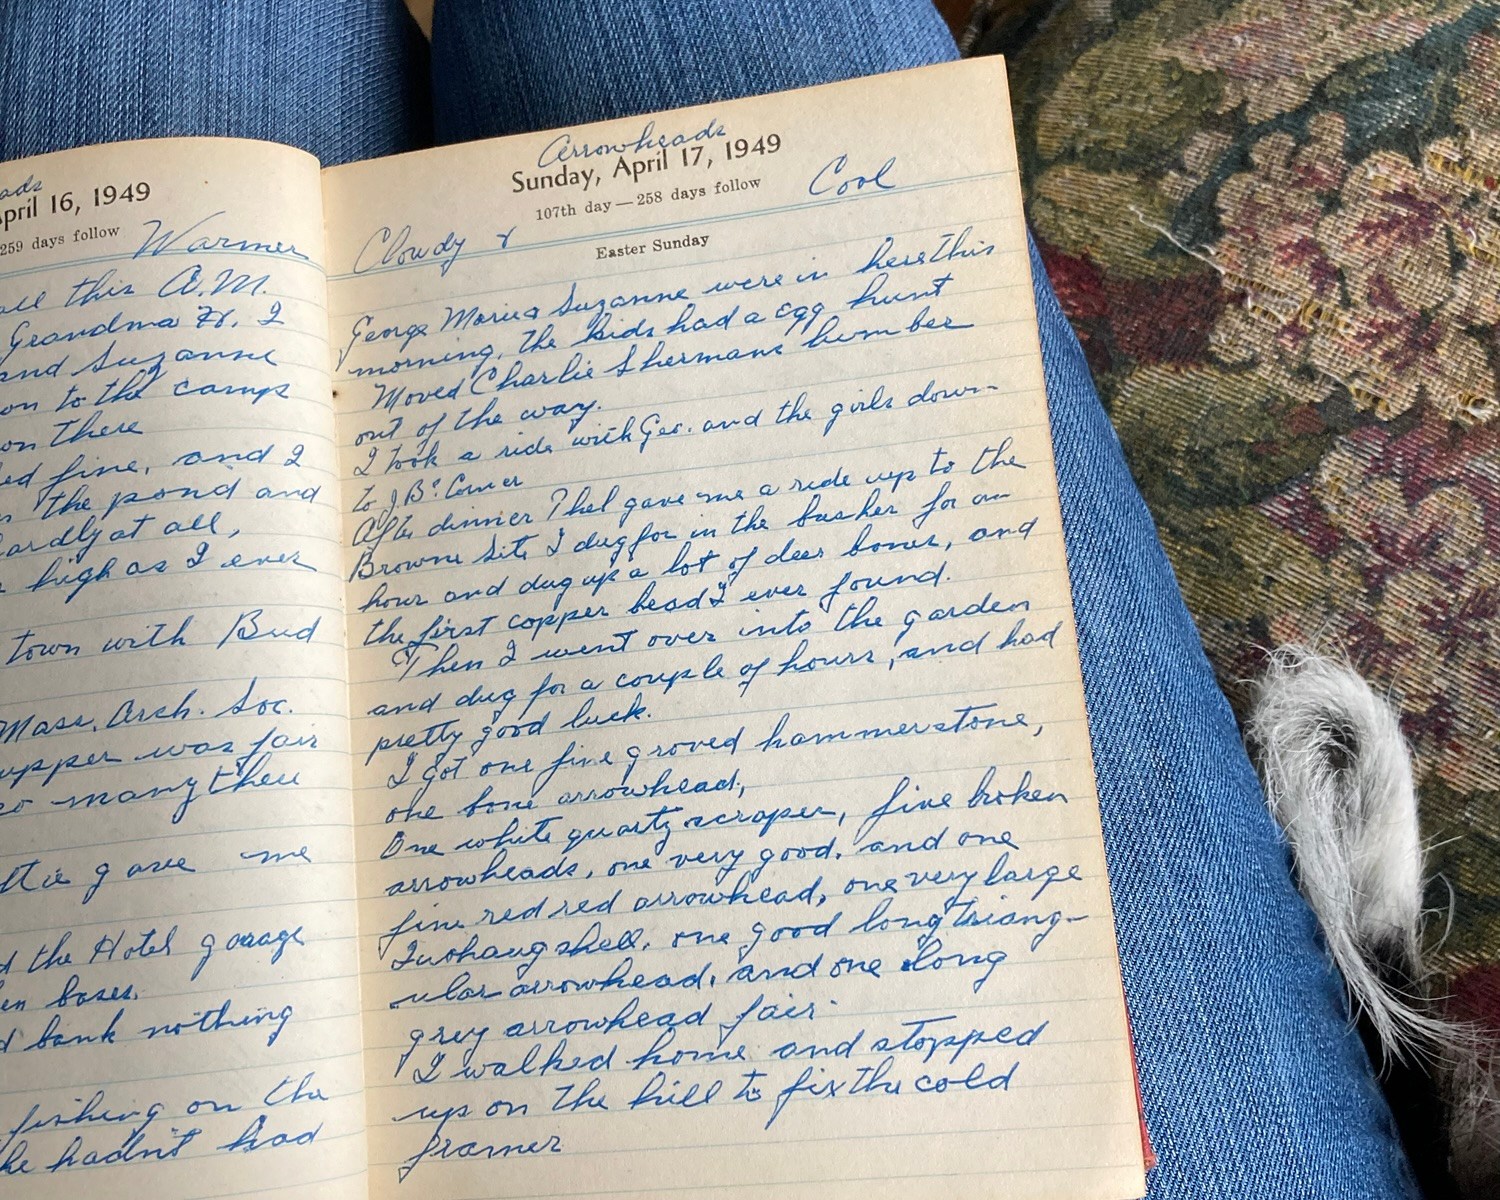 ads
April 16, 1949
259 days follow
Warmer
all this A.M.
Grandma H. I
and Suzanne
on to the camps
on there
ed fine, and I
the pond and
hardly at all,
high as I ever
town with Bud
Mass. Arch. Soc.
upper was fair
so many there
gave me
d the Hotel garage
en boxes.
d bank nothing
fishing on the
he hadn't had
Arrowheads
Sunday, April 17, 1949
107th day — 258 days follow
Cloudy & Cool
Easter Sunday
George Marie & Suzanne were in here this
morning, the kids had a egg hunt
Moved Charlie Shermans lumber
out of the way.
I took a ride with Geo. and the girls down
to J.B's Corner
After dinner Thel gave me a ride up to the
Browne Site I dug for in the bushes for an
hour and dug up a lot of deer bones, and
the first copper bead I ever found.
Then I went over into the garden
and dug for a couple of hours, and had
pretty good luck.
I got one fine groved hammerstone,
one bone arrowhead,
One white quartz scraper, five broken
arrowheads, one very good, and one
fine red red arrowhead, one very large
Quohaug shell, one good long triang-
ular arrowhead, and one long
grey arrowhead fair.
I walked home and stopped
up on the hill to fix the cold
framer